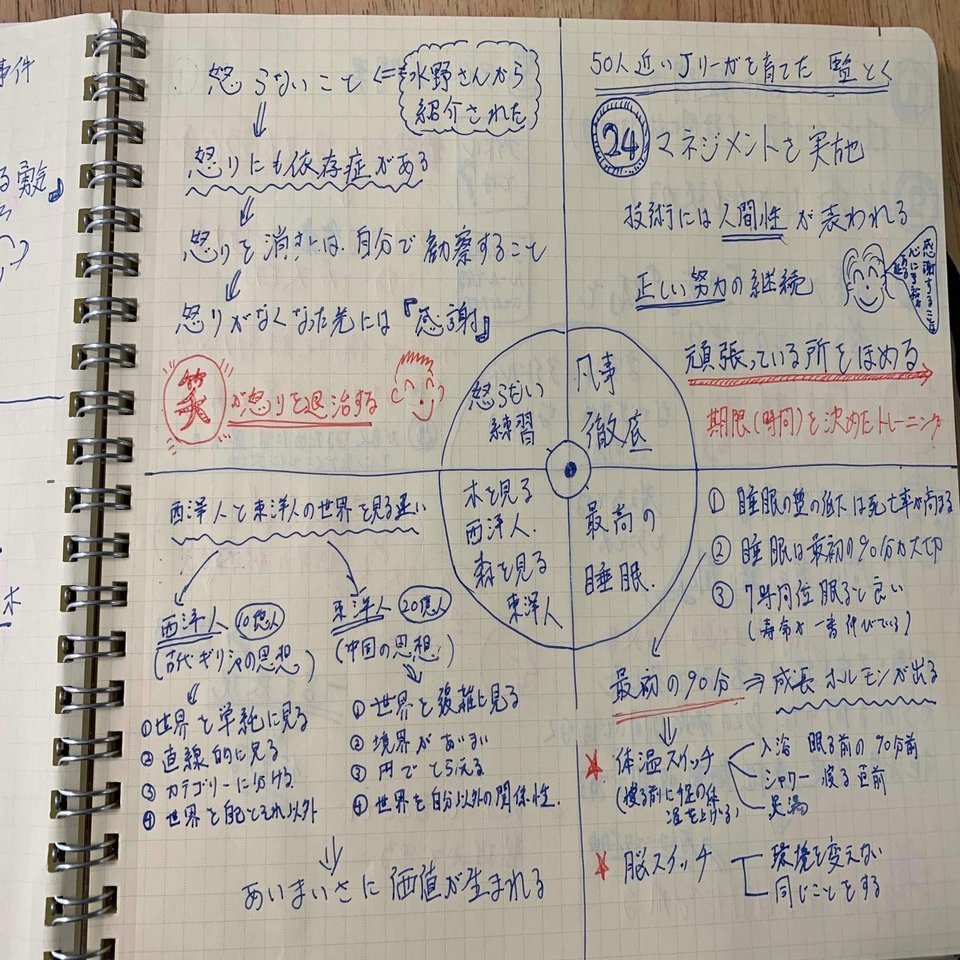 事件
怒らないこと
水野さんから
紹介された
怒りにも依存症がある
怒りを消すには自分で観察すること
怒りがなくなった先には『感謝』
笑が怒りを退治する
50人近いJリーガを育てた 監とく
24 マネジメントを実施
技術には人間性が表われる
正しい努力の継続
感謝することは
心に余裕が
ある証
頑張っている所をほめる
期限(時間)を決めたトレーニング
怒らない
練習
凡事
徹底
木を見る
西洋人.
森を見る
東洋人
最高の
睡眠.
西洋人と東洋人の世界を見る違い
西洋人 10億人
(古代ギリシャの思想)
①世界を単純に見る
②直線的に見る
③カテゴリーに分ける
④世界を自己とそれ以外
東洋人 20億人
(中国の思想)
①世界を複雑に見る
②境界があいまい
③円でとらえる
④世界を自分以外の関係性.
あいまいさに価値が生まれる
① 睡眠の質の低下は死亡率が高まる
② 睡眠は最初の90分が大切
③ 7時間位眠ると良い
(寿命が一番伸びている)
最初の90分⇒成長ホルモンが出る
★ 体温スイッチ
(寝る前に
温を上げる)
入浴 眠る前の90分前
シャワー 寝る直前
足湯
★ 脳スイッチ
環境を変えない
同じことをする